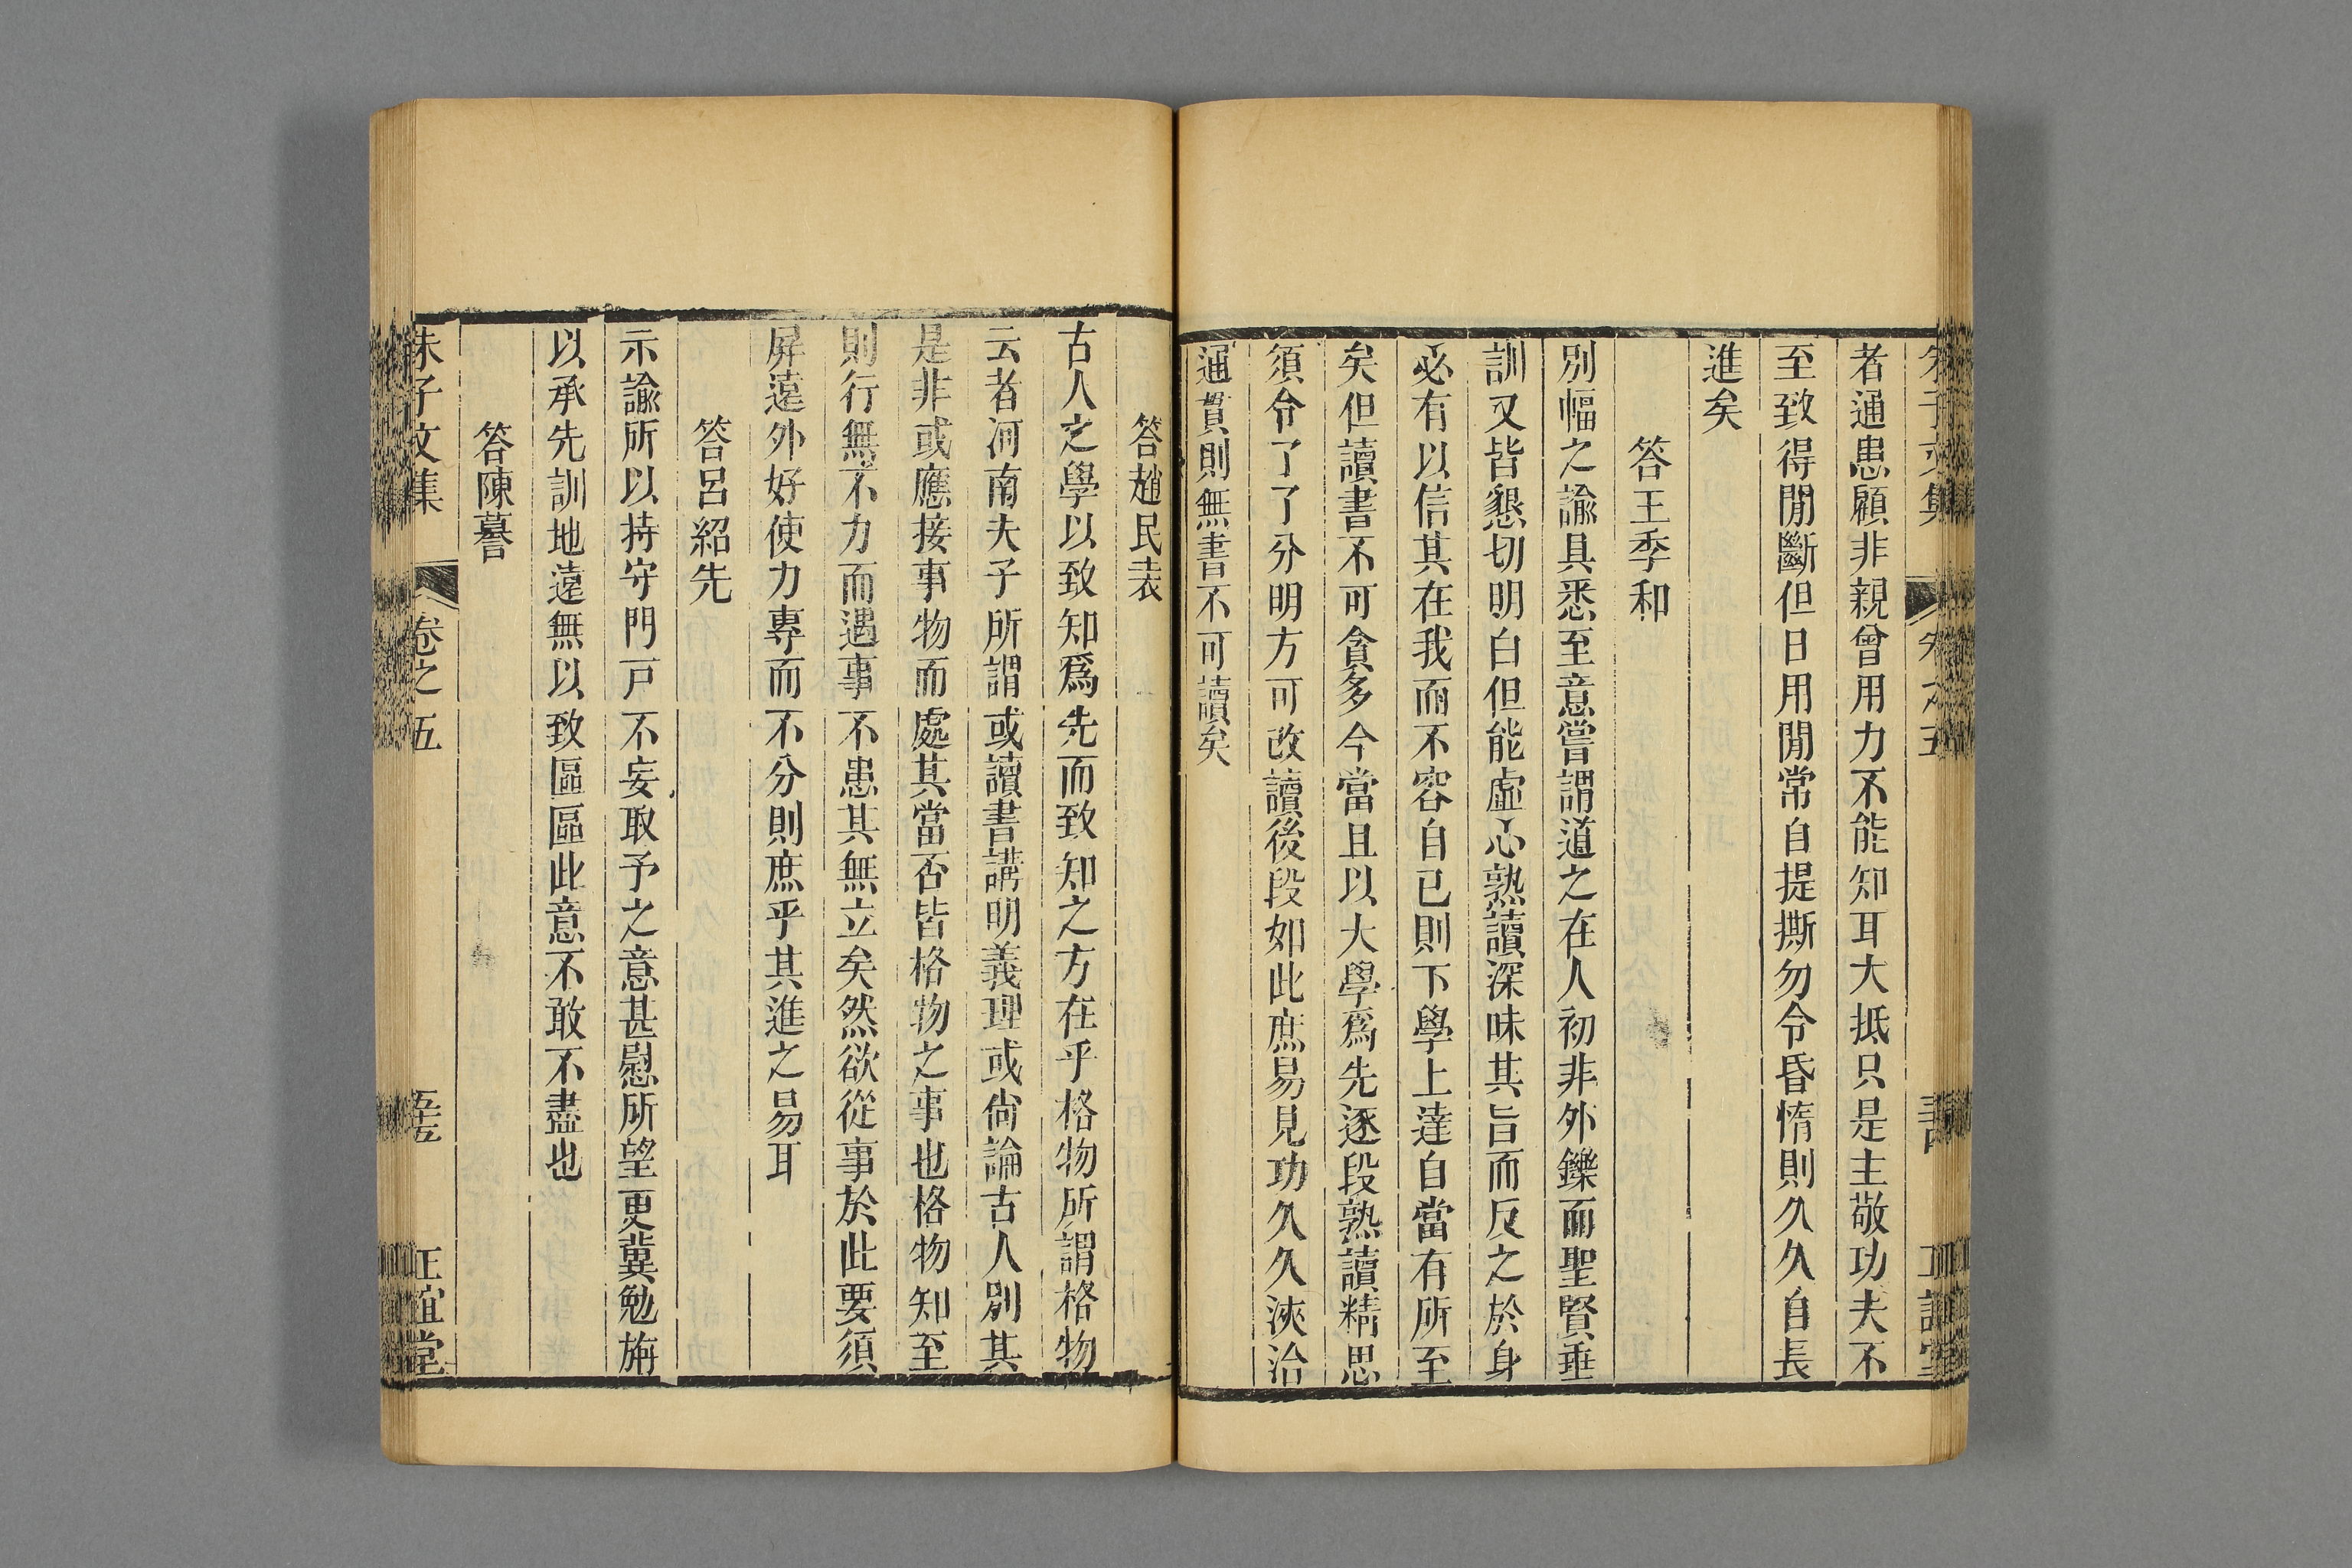 者通患顧非親曾用力不能知耳大抵只是主敬功夫不
至致得閒斷但日用閒常自提撕勿令昏惰則久久自長
進矣
答王季和
別幅之諭具悉至意嘗謂道之在人初非外鑠而聖賢垂
訓又皆懇切明白但能虛心熟讀深味其旨而反之於身
必有以信其在我而不容自已則下學上達自當有所至
矣但讀書不可貪多今當且以大學爲先逐段熟讀精思
須令了了分明方可改讀後段如此庶易見功久久浹洽
通貫則無書不可讀矣
答趙民表
古人之學以致知爲先而致知之方在乎格物所謂格物
云者河南夫子所謂或讀書講明義理或尙論古人別其
是非或應接事物而處其當否皆格物之事也格物知至
則行無不力而遇事不患其無立矣然欲從事於此要須
屏遠外好使力專而不分則庶乎其進之易耳
答呂紹先
示諭所以持守門戸不妄取予之意甚慰所望更冀勉旃
以承先訓地遠無以致區區此意不敢不盡也
答陳謩
朱子文集 卷之五 正誼堂